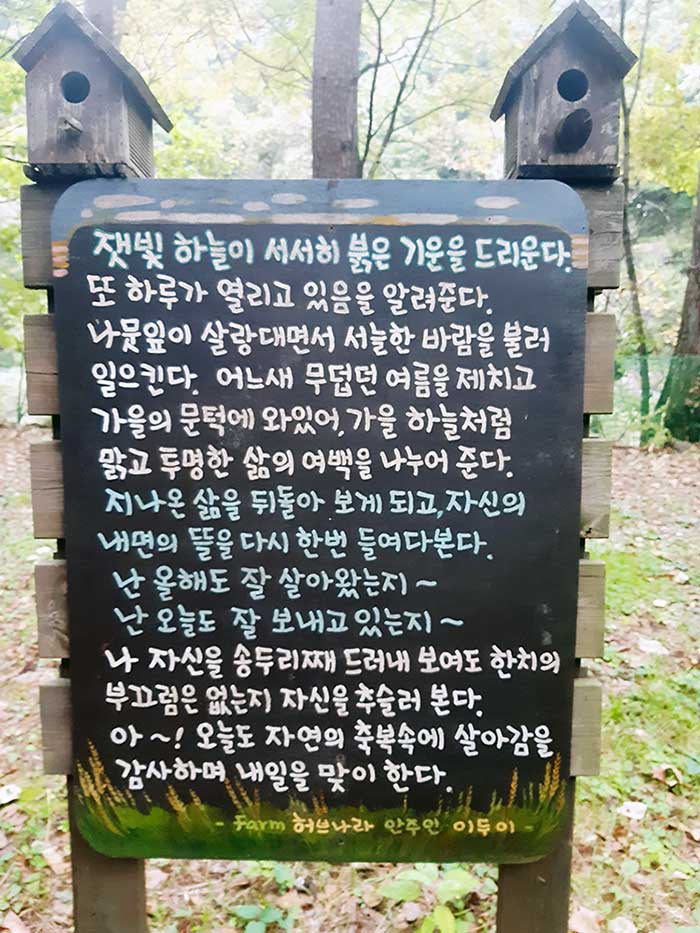 잿빛 하늘이 서서히 붉은 기운을 드리운다.
또 하루가 열리고 있음을 알려준다.
나뭇잎이 살랑대면서 서늘한 바람을 불러
일으킨다. 어느새 무덥던 여름을 제치고
가을의 문턱에 와있어. 가을 하늘처럼
맑고 투명한 삶의 여백을 나누어 준다.
지나온 삶을 뒤돌아 보게 되고, 자신의
내면의 뜰을 다시 한번 들여다본다.
난 올해도 잘 살아왔는지~
난 오늘도 잘 보내고 있는지~
나 자신을 송두리째 드러내 보여도 한치의
부끄럼은 없는지 자신을 추슬러 본다.
아~! 오늘도 자연의 축복속에 살아감을
감사하며 내일을 맞이 한다.
- Farm 허브나라 안주인 이두이 -